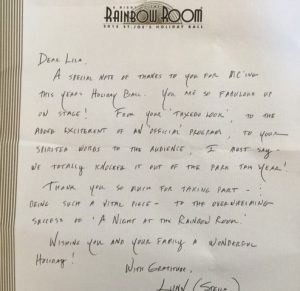 A NIGHT AT THE
RAINBOW ROOM
2015 ST. JOE'S HOLIDAY BALL
DEAR LISA,
A SPECIAL NOTE OF THANKS TO YOU FOR MC'ING
THIS YEARS HOLIDAY BALL. YOU ARE SO FABULOUS UP
ON STAGE! FROM YOUR 'TUXEDO LOOK', TO THE
ADDED EXCITEMENT OF AN OFFICIAL PROGRAM, TO YOUR
SPIRITED WORDS TO THE AUDIENCE, I MUST SAY -
WE TOTALLY KNOCKED IT OUT OF THE PARK THIS YEAR!
THANK YOU SO MUCH FOR TAKING PART -
BEING SUCH A VITAL PIECE - TO THE OVERWHELMING
SUCCESS OF 'A NIGHT AT THE RAINBOW ROOM'
WISHING YOU AND YOUR FAMILY A WONDERFUL
HOLIDAY!
WITH GRATITUDE,
LYNN (STELLA)